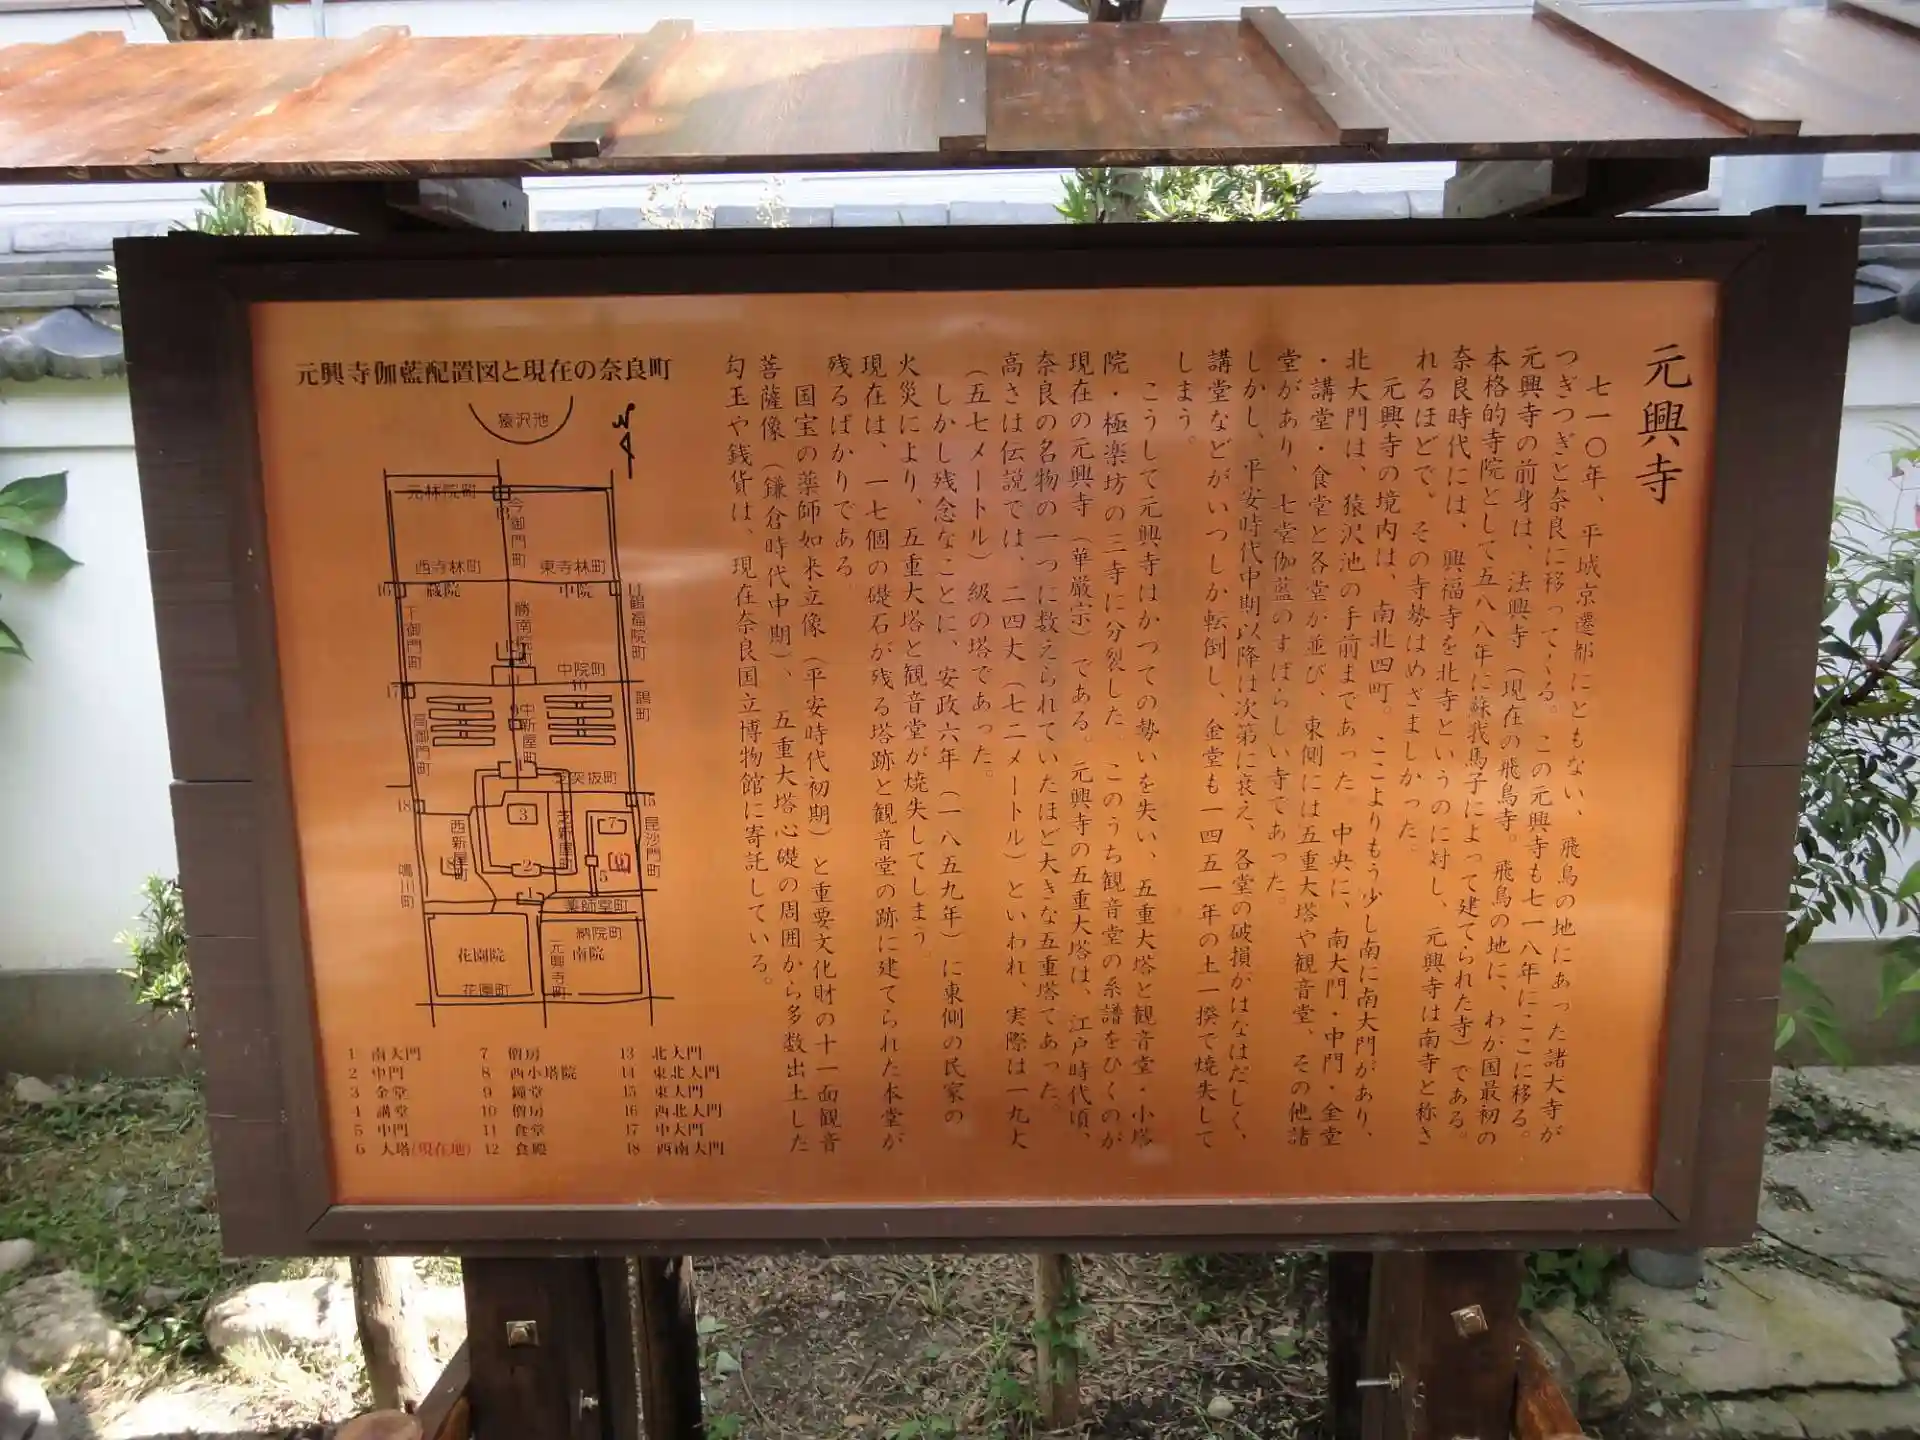 元興寺
七一〇年、平城京遷都にともない、飛鳥の地にあった諸大寺が
つぎつぎと奈良に移ってくる。この元興寺も七一八年にここに移る。
元興寺の前身は、法興寺（現在の飛鳥寺。飛鳥の地に、わが国最初の
本格的寺院として五八八年に蘇我馬子によって建てられた寺）である。
奈良時代には、興福寺を北寺というのに対し、元興寺は南寺と称さ
れるほどで、その寺勢はめざましかった。
元興寺の境内は、南北四町。ここよりもう少し南に南大門があり、
北大門は、猿沢池の手前まであった。中央に、南大門・中門・金堂
・講堂・食堂と各堂が並び、東側には五重大塔や観音堂、その他諸
堂があり、七堂伽藍のすばらしい寺であった。
しかし、平安時代中期以降は次第に衰え、各堂の破損がはなはだしく、
講堂などがいつしか転倒し、金堂も一四五一年の土一揆で焼失して
しまう。
こうして元興寺はかつての勢いを失い、五重大塔と観音堂・小塔
院・極楽坊の三寺に分裂した。このうち観音堂の系譜をひくのが
現在の元興寺（華厳宗）である。元興寺の五重大塔は、江戸時代頃、
奈良の名物の一つに数えられていたほど大きな五重塔であった。
高さは伝説では、二四丈（七二メートル）といわれ、実際は一九丈
（五七メートル）級の塔であった。
しかし残念なことに、安政六年（一八五九年）に東側の民家の
火災により、五重大塔と観音堂が焼失してしまう。
現在は、一七個の礎石が残る塔跡と観音堂の跡に建てられた本堂が
残るばかりである。
国宝の薬師如来立像（平安時代初期）と重要文化財の十一面観音
菩薩像（鎌倉時代中期）、五重大塔心礎の周囲から多数出土した
勾玉や銭貨は、現在奈良国立博物館に寄託している。
元興寺伽藍配置図と現在の奈良町
猿沢池
N
元林院町
13
今御門町
西寺林町
東寺林町
16
蔵院
中院
下御門町
勝南院町
鶴福院町
中院町
10
17
9
中新屋町
高御門町
鵲町
芝突抜町
18
15
3
7
西新屋町
芝新屋町
毘沙門町
8
2
6
5
鳴川町
1
薬師堂町
納院町
花園院
南院
元興寺町
花園町
1 南大門
2 中門
3 金堂
4 講堂
5 中門
6 大塔(現在地)
7 僧房
8 西小塔院
9 鐘堂
10 僧房
11 食堂
12 食殿
13 北大門
14 東北大門
15 東大門
16 西北大門
17 中大門
18 西南大門